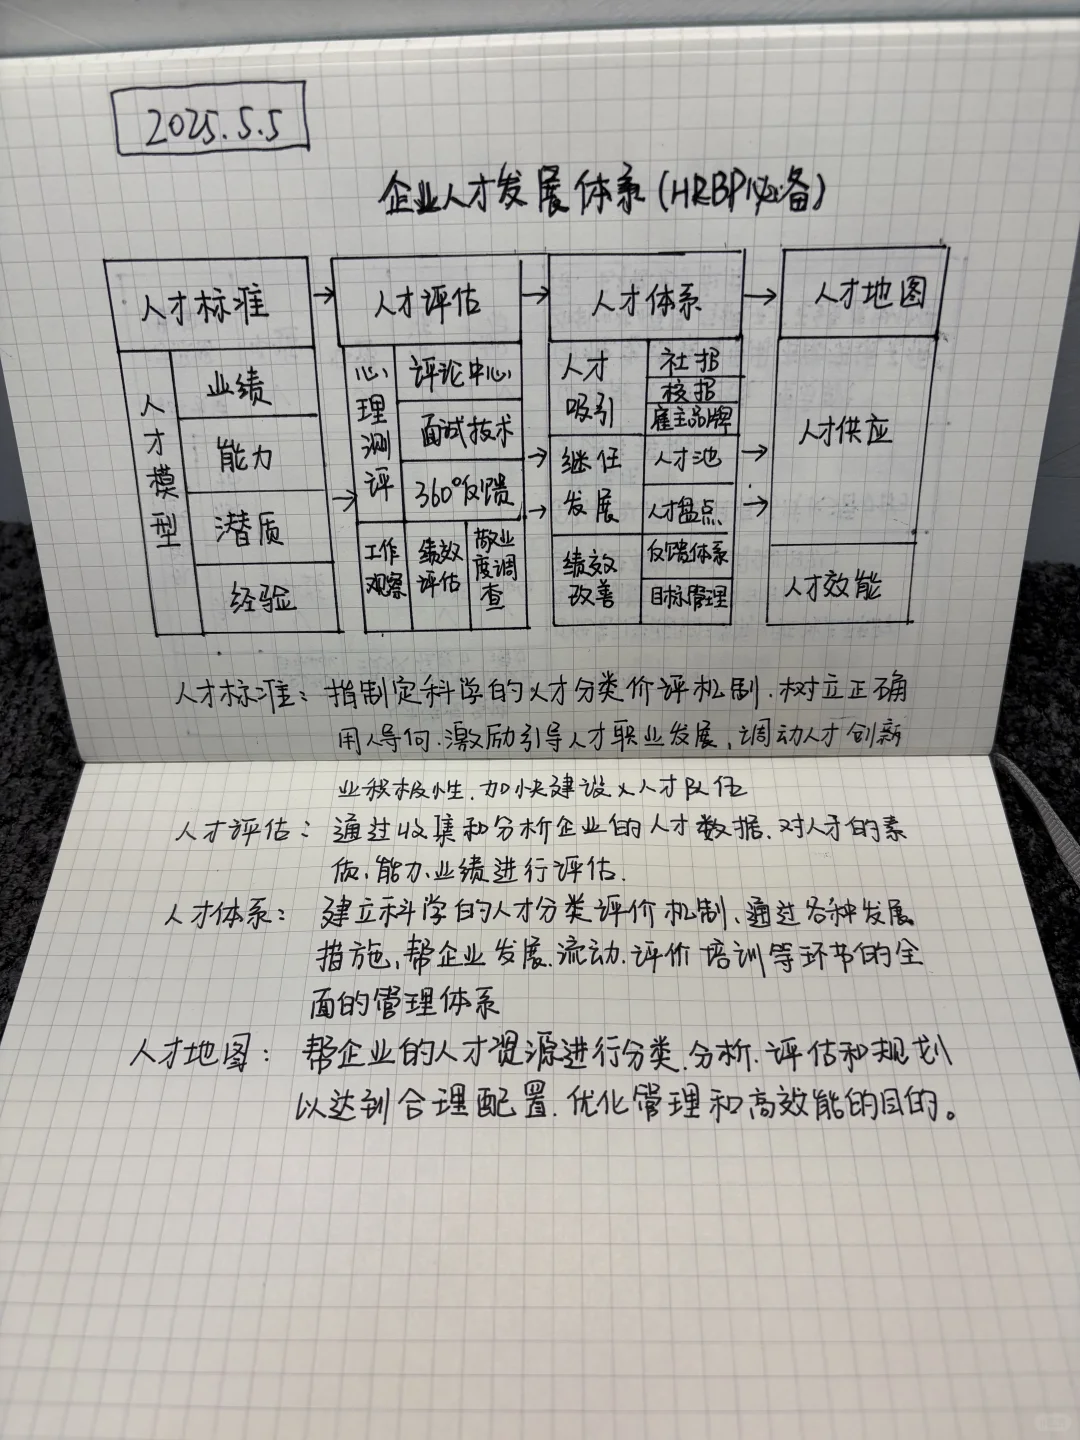 2025.5.5
企业人才发展体系(HRBP必备)
人才标准 → 人才评估 → 人才体系 → 人才地图
人才模型
业绩
能力
潜质
经验
心理测评
评论中心
面试技术
360°反馈
工作观察
绩效评估
敬业度调查
人才吸引
社招
校招
雇主品牌
继任发展
人才池
人才盘点
绩效改善
反馈体系
目标管理
人才供应
人才效能
人才标准：指制定科学的人才分类价评机制.树立正确
用人导向.激励引导人才职业发展,调动人才创新
业积极性.加快建设人才队伍
人才评估：通过收集和分析企业的人才数据.对人才的素
质,能力,业绩进行评估.
人才体系：建立科学的人才分类评价机制、通过各种发展
措施,帮企业发展.流动.评价培训等环节的全
面的管理体系
人才地图：帮企业的人才资源进行分类.分析.评估和规划
以达到合理配置.优化管理和高效能的目的。